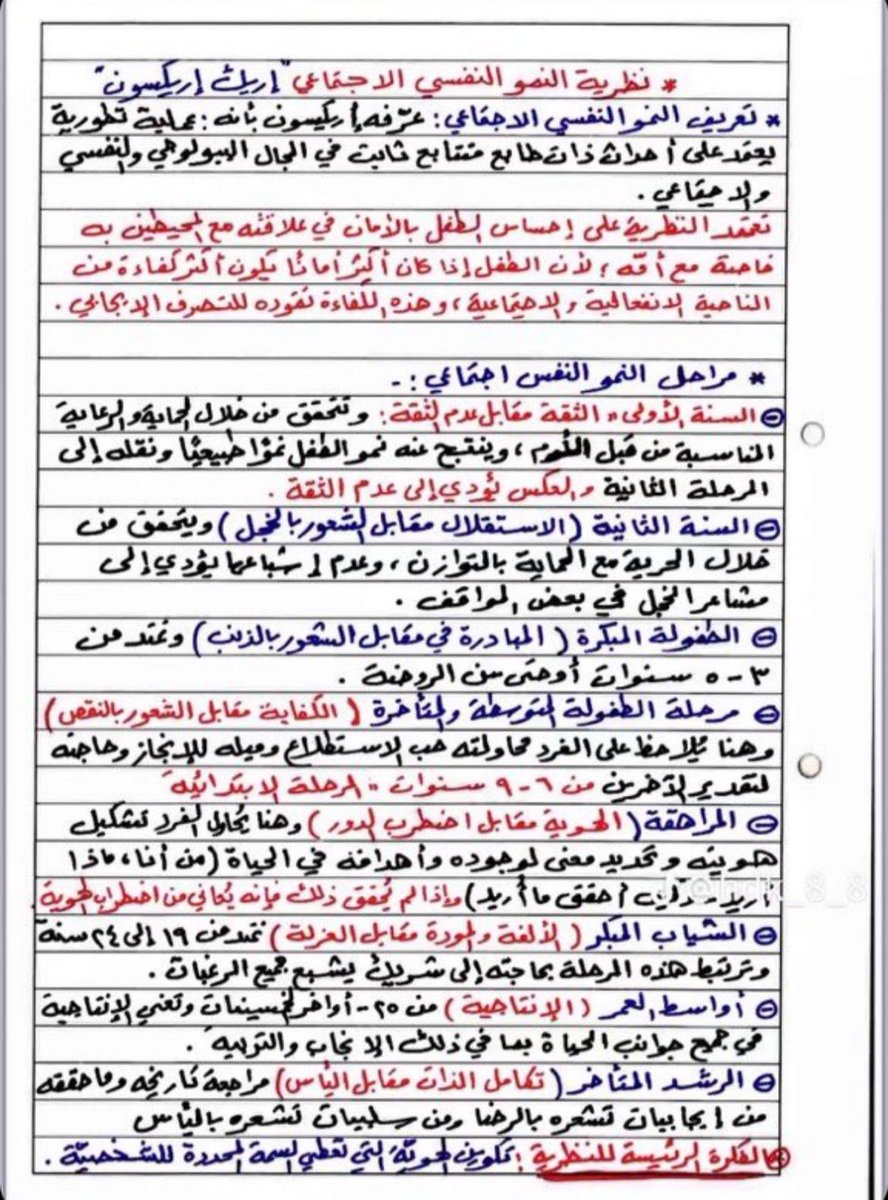 * نظرية النمو النفسي الاجتماعي "إريك إريكسون"
* تعريف النمو النفسي الاجتماعي: عرّفه إريكسون بأنه: عملية تطورية
يعتمد على أحداث ذات طابع متتابع ثابت في المجال البيولوجي والنفسي
والاجتماعي.
تعتمد النظرية على إحساس الطفل بالأمان في علاقته مع المحيطين به
خاصة مع أمّه؛ لأن الطفل إذا كان أكثر أمانًا يكون أكثر كفاءة من
الناحية الانفعالية والاجتماعية، وهذه الكفاءة تقوده للتصرف الإيجابي.
* مراحل النمو النفس اجتماعي:-
السنة الأولى "الثقة مقابل عدم الثقة: وتتحقق من خلال الحماية والرعاية
المناسبة من قبل الأم، وينتج عنه نمو الطفل نموًا طبيعيًا ونقله إلى
المرحلة الثانية والعكس يؤدي إلى عدم الثقة.
السنة الثانية (الاستقلال مقابل الشعور بالخجل) ويتحقق من
خلال الحرية مع الحماية بالتوازن، وعدم إشباعها يؤدي إلى
مشاعر الخجل في بعض المواقف.
الطفولة المبكرة (المبادرة في مقابل الشعور بالذنب) وتمتد من
٣-٥ سنوات أو حتى سن الروضة.
مرحلة الطفولة المتوسطة والمتأخرة (الكفاية مقابل الشعور بالنقص)
وهنا يُلاحظ على الفرد محاولته حب الاستطلاع وميله للإنجاز وحاجته
لتقدير الآخرين من ٦-٩ سنوات "المرحلة الابتدائية"
المراهقة (الهوية مقابل اضطرب الدور) وهنا يُحاول الفرد تشكيل
هويته وتحديد معنى لوجوده وأهدافه في الحياة (من أنا، ماذا
أريد - كيف أحقق ما أريد) وإذا لم يُحقق ذلك فإنه يُعاني من اضطراب الهوية.
الشباب المبكر (الألفة والمودة مقابل العزلة) تمتد من ١٩ إلى ٢٤ سنة
وترتبط هذه المرحلة بحاجته إلى شريك يشبع جميع الرغبات.
أواسط العمر (الإنتاجية) من ٢٥- أواخر الخمسينات وتعني الإنتاجية
في جميع جوانب الحياة بما في ذلك الإنجاب والتربية.
الرشد المتأخر (تكامل الذات مقابل اليأس) مراجعة تاريخه وما حققه
من إيجابيات تشعره بالرضا ومن سلبيات تشعره باليأس
الفكرة الرئيسة للنظرية: تكوين الهويّة التي تعطي السمة المحددة للشخصيّة.